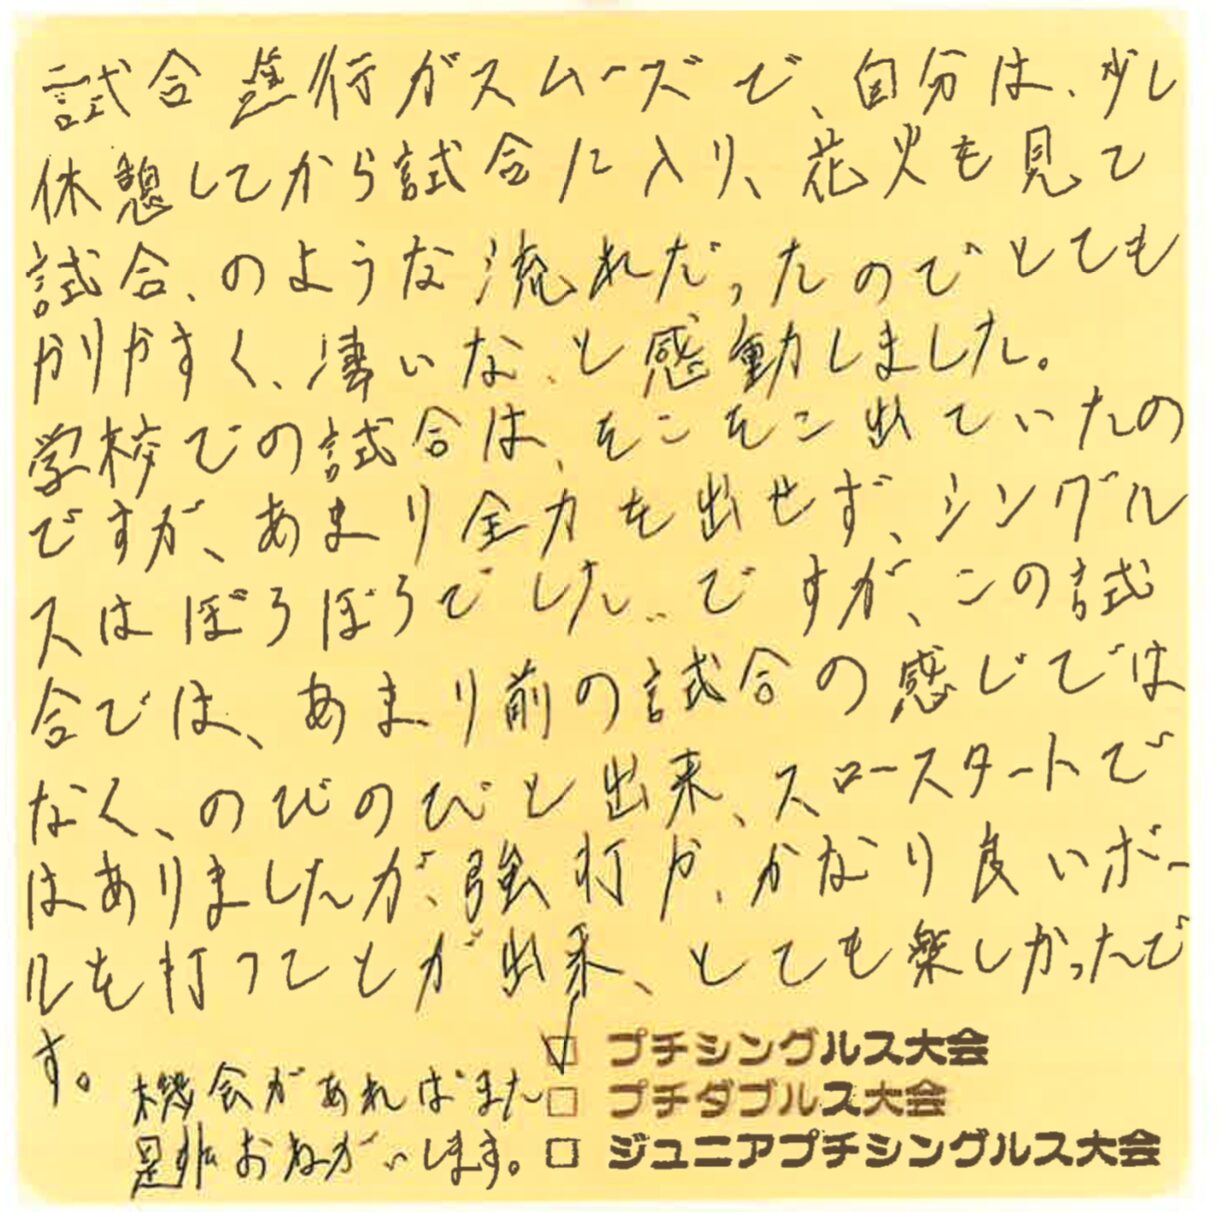 試合進行がスムーズで、自分は、少し
休憩してから試合に入り、花火も見て
試合、のような流れだったのでとても
かりやすく、凄いな、と感動しました。
学校での試合は、そこそこ出ていたの
ですが、あまり全力を出せず、シングル
スはぼろぼろでした。ですが、この試
合では、あまり前の試合の感じでは
なく、のびのびと出来、スロースタートで
はありましたが、強打や、かなり良いボー
ルを打つことが出来、とても楽しかったで
す。
機会があればまた
是非おねがいします。
プチシングルス大会
プチダブルス大会
ジュニアプチシングルス大会